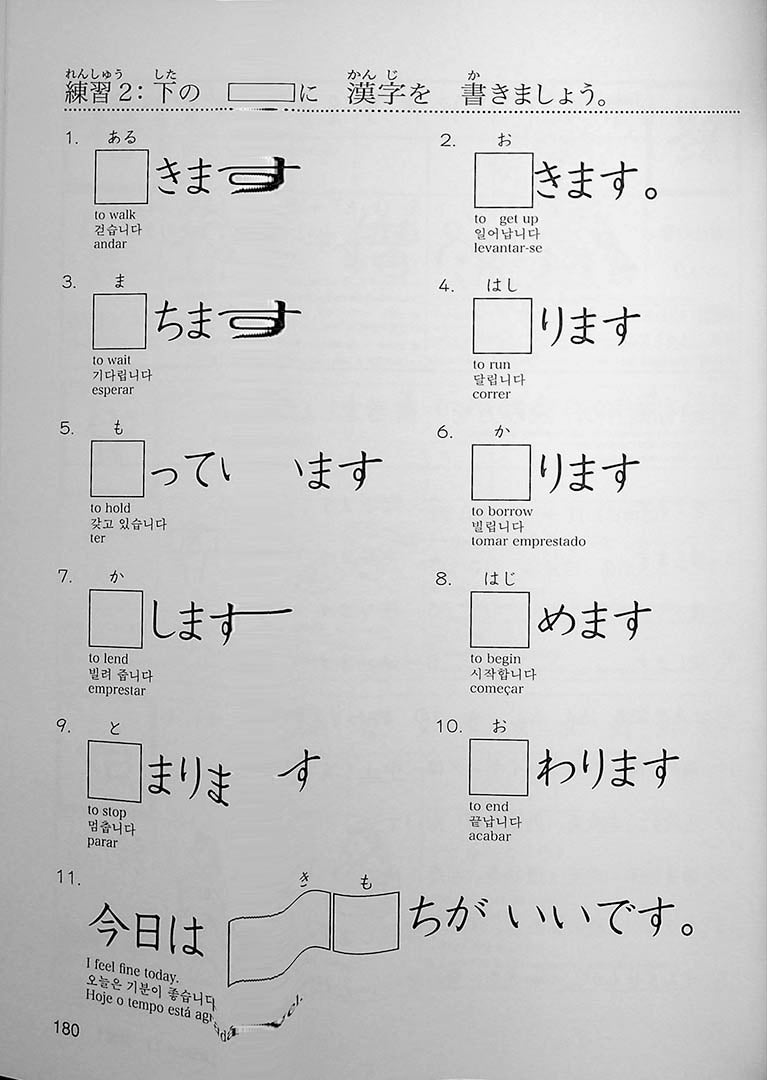 れんしゅう した かん じ か
練習2: 下の に 漢字を 書きましょう。
1. ある
きます
to walk
걷습니다
andar
2. お
きます。
to get up
일어납니다
levantar-se
3. ま
ちます
to wait
기다립니다
esperar
4. はし
ります
to run
달립니다
correr
5. も
ってい ます
to hold
갖고 있습니다
ter
6. か
ります
to borrow
빌립니다
tomar emprestado
7. か
します
to lend
빌려 줍니다
emprestar
8. はじ
めます
to begin
시작합니다
começar
9. と
まりま す
to stop
멈춥니다
parar
10. お
わります
to end
끝납니다
acabar
11.
き も
今日は ちが いいです。
I feel fine today.
오늘은 기분이 좋습니다
Hoje o tempo está
180